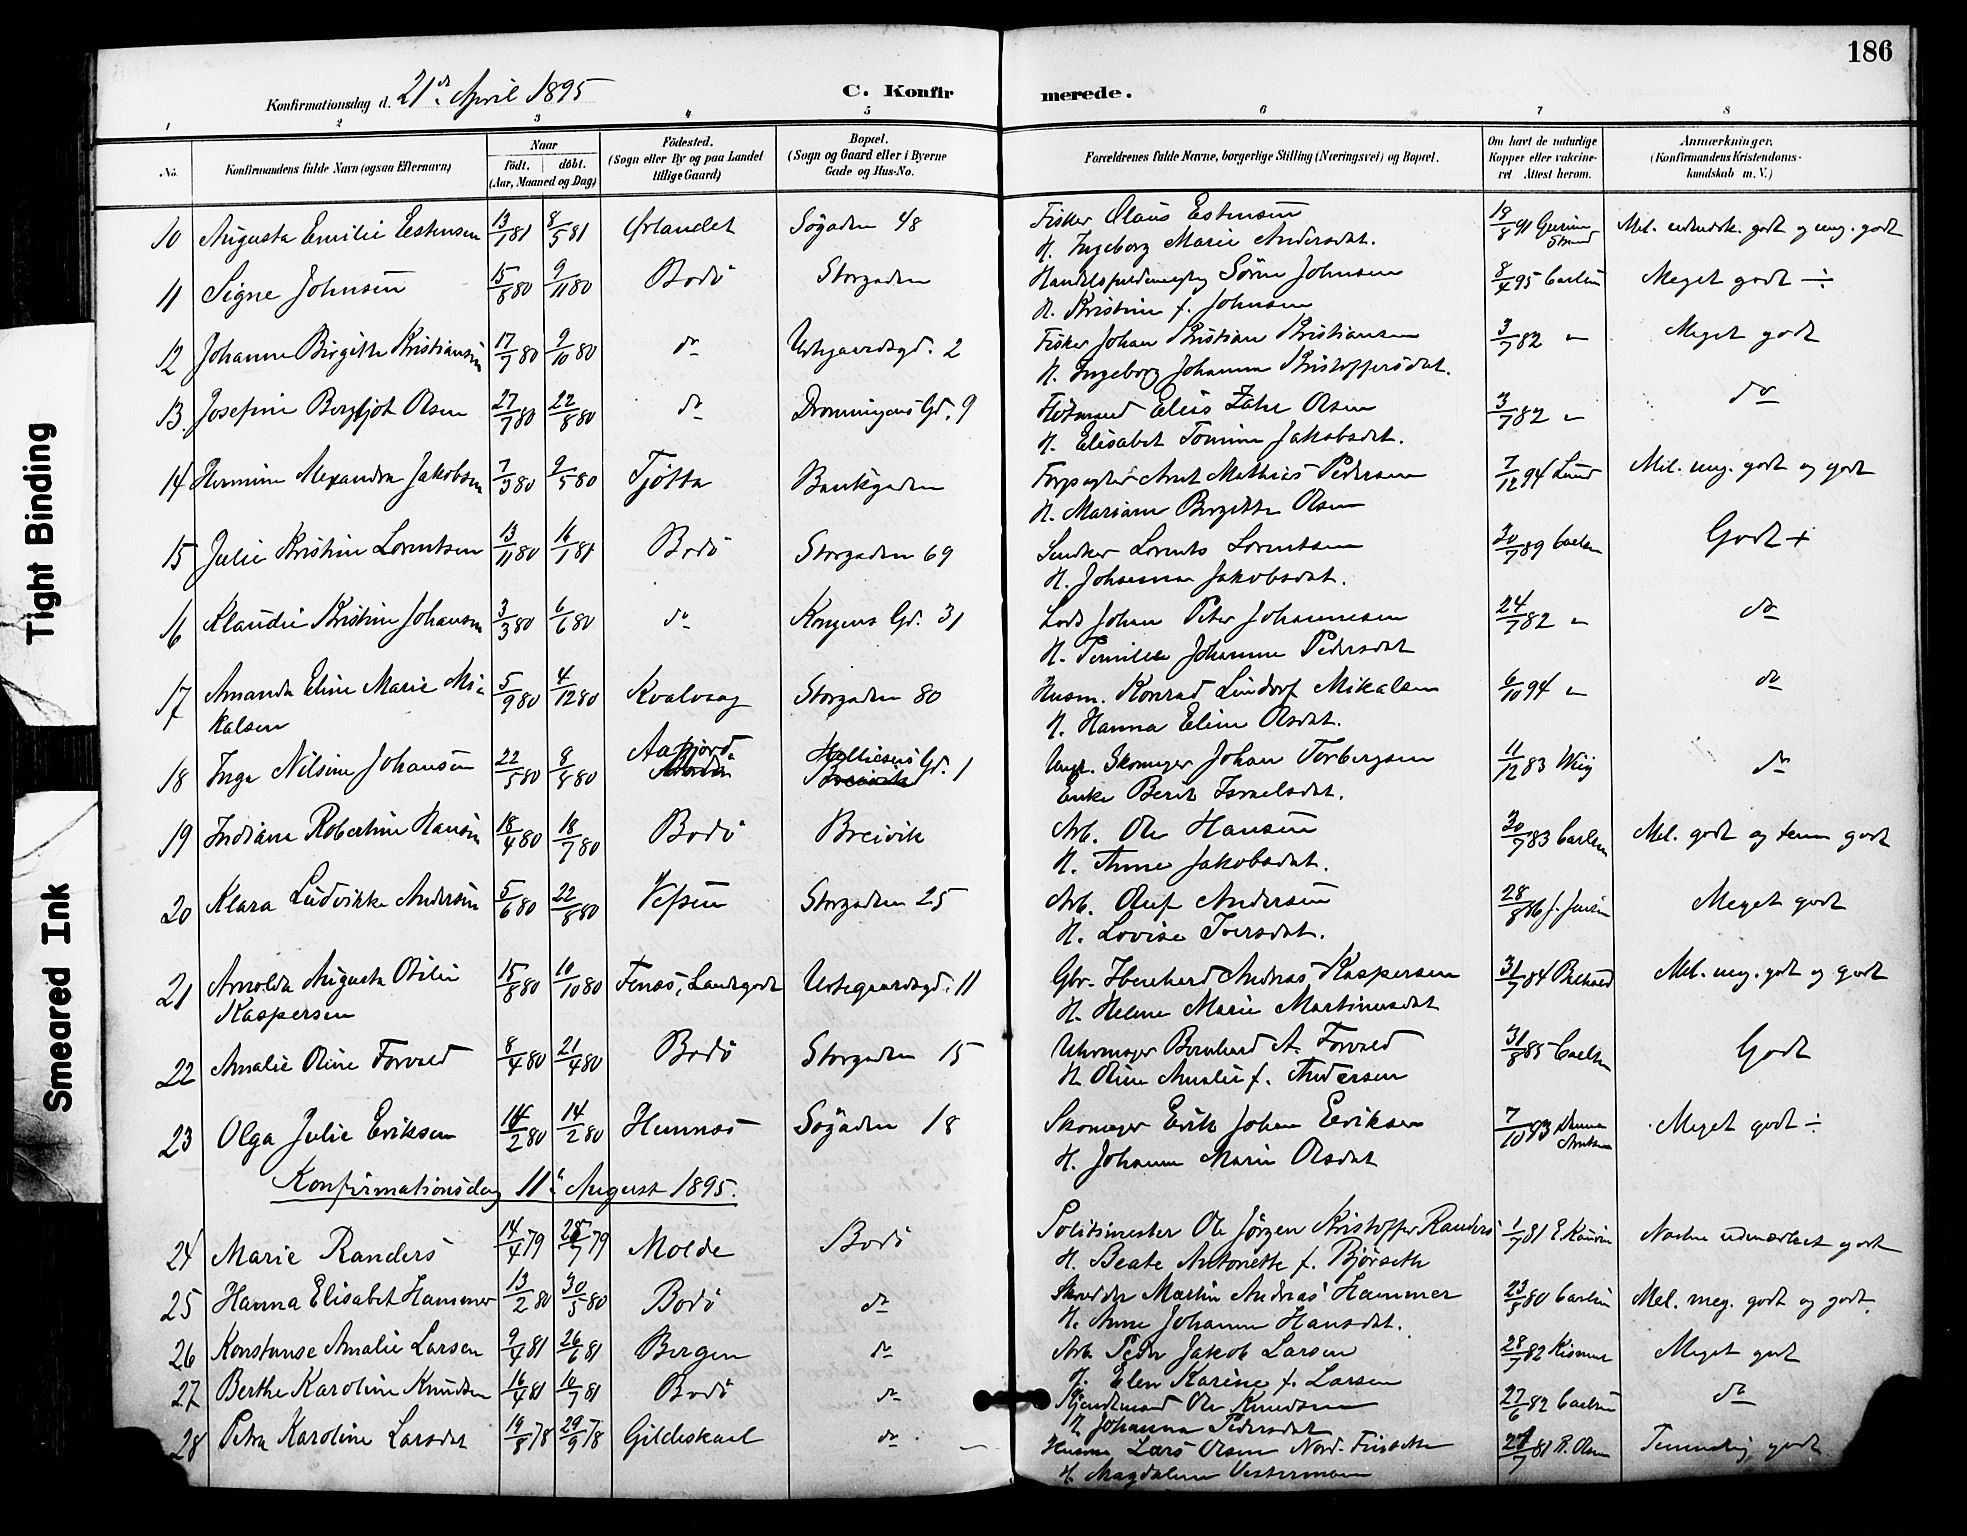 186
Konfirmationsdag d. 21de April 1895
C. Konfirmerede.
1 2 3 4 5 6 7 8
No.
Konfirmandens fulde Navn (ogsaa Efternavn)
Naar
født. døbt.
(Aar, Maaned og Dag)
Födested.
(Sogn eller By og paa Landet
tillige Gaard)
Bopæl.
(Sogn og Gaard eller i Byerne
Gade og Hus-No.
Forældrenes fulde Navne, borgerlige Stilling (Næringsvei) og Bopæl.
Om havt de naturlige
Kopper eller vakcine-
ret Attest herom.
Anmærkninger.
(Konfirmandens Kristendoms-
kundskab m. V.)
10 Augusta Emilie Estensen 13/1 81 8/5 81 Ørlandet Søgaden 48 Fisker Olaus Estensen 18/8 91 Mel. udmærk. godt og meg. godt
H. Ingeborg Marie Andersdat.
11 Signe Johnsen 15/8 80 9/11 80 Bodö Storgaden Sörin Johnsen 8/4 95 Carlsen Meget godt ÷
H. Kristine f. Johnsen
12 Johanne Birgitte Kristiansen 17/7 80 9/10 80 do Urtegaardsgd. 2 Fisker Johan Kristian Kristiansen 3/7 82 " Meget godt
H. Ingeborg Johanna Kristoffersdat.
13. Josefine Bergljot Olsen 27/7 80 22/8 80 do Dronningens Gd. 9 Elias Zahl Olsen 3/7 82 " do
H. Elisabet Tomine Jakobsdat.
14 Hermine Alexandra Jakobsen 7/3 80 9/5 80 Tjötta Bankgaden Forpagter Arnt Mathias Pedersen 7/12 94 Lund Mel. meg. godt og godt
H. Mariane Bergitte Olsen
15 Julie Kristine Lorentsen 13/11 80 16/1 81 Bodö Storgaden 69 Snedker Lorents Lorentsen 30/7 89 Carlsen Godt +
H. Johanna Jakobsdat.
16 Klaudie Kristine Johansen 3/3 80 6/6 80 do Kongens Gd. 31 Lods Johan Peter Johannesen 24/7 82 " do
H. Pernille Johanna Pedersdat
17 Amanda Eline Marie Mi- 5/9 80 4/12 80 Kvalvaag Storgaden 80 Husm. Konrad Lindorf Mikalsen 6/10 94 " do
kalsen H. Hanna Eline Olsdat.
18 Inga Nilsine Johansen 22/5 80 8/8 80 Aafjord Gd. 1 Skomager Johan Torbergsen 11/12 83 Wiig do
Breivik
Enke Berit Israelsdat.
19 Indiana Robertine Hansen 18/4 80 18/7 80 Bodö Breivik Arb. Ole Hansen 30/7 83 Carlsen Mel. godt og tem godt
H. Anne Jakobsdat.
20 Klara Ludvikke Andersen 5/6 80 22/8 80 Vefsen Storgaden 25 Arb. Oluf Andersen 28/8 86 J. Jensen Meget godt
H. Lovise Iversdat.
21 Arnolda Augusta Otilie 15/8 80 10/10 80 Fenes, Landegode Urtegaardsgd. 11 Gbr. Andreas Kaspersen 31/7 84 Mel. meg. godt og godt
Kaspersen H. Helene Marie Martinusdat
22 Amalie Oline Forvald 8/4 80 21/4 80 Bodö Storgaden 15 Uhrmager Bernhard A. Forvald 31/8 85 Carlsen Godt
H Oline Amalie f. Andersen
23 Olga Julie Eriksen 14/2 80 14/2 80 Hemnes Søgaden 18 Skomager Erik Johan Eriksen 7/10 93 Meget godt ÷
H. Johanna Marie Olsdat
Konfirmationsdag 11te August 1895.
24 Marie Randers 14/4 79 28/7 79 Molde Bodö Politimester Ole Jörgen Kristoffer Randers 1/7 81 E. Kaurin Næsten udmærket godt
H. Beate Antonette f. Björseth
25 Hanna Elisabet Hammer 13/2 80 30/5 80 Bodö do Skredder Martin Andreas Hammer 23/5 80 Carlsen Mel. meg. godt og godt.
H. Anne Johanna Hansdat.
26 Konstanse Amalie Larsen 9/4 81 26/6 81 Bergen do Arb. Peder Jakob Larsen 28/7 82 Meget godt
H. Elen Karine f. Larsen
27 Berthe Karoline Knudsen 16/4 81 10/7 81 Bodö do Ole Knudsen 27/6 82 Carlsen do
H Johanna Pedersdat
28 Petra Karoline Larsdat 19/8 78 29/9 78 Gildeskaal do Lars Olsen 27/7 81 R. Olsen Temmelig godt
H. Magdalena Vestermann
Tight Binding
Smeared Ink